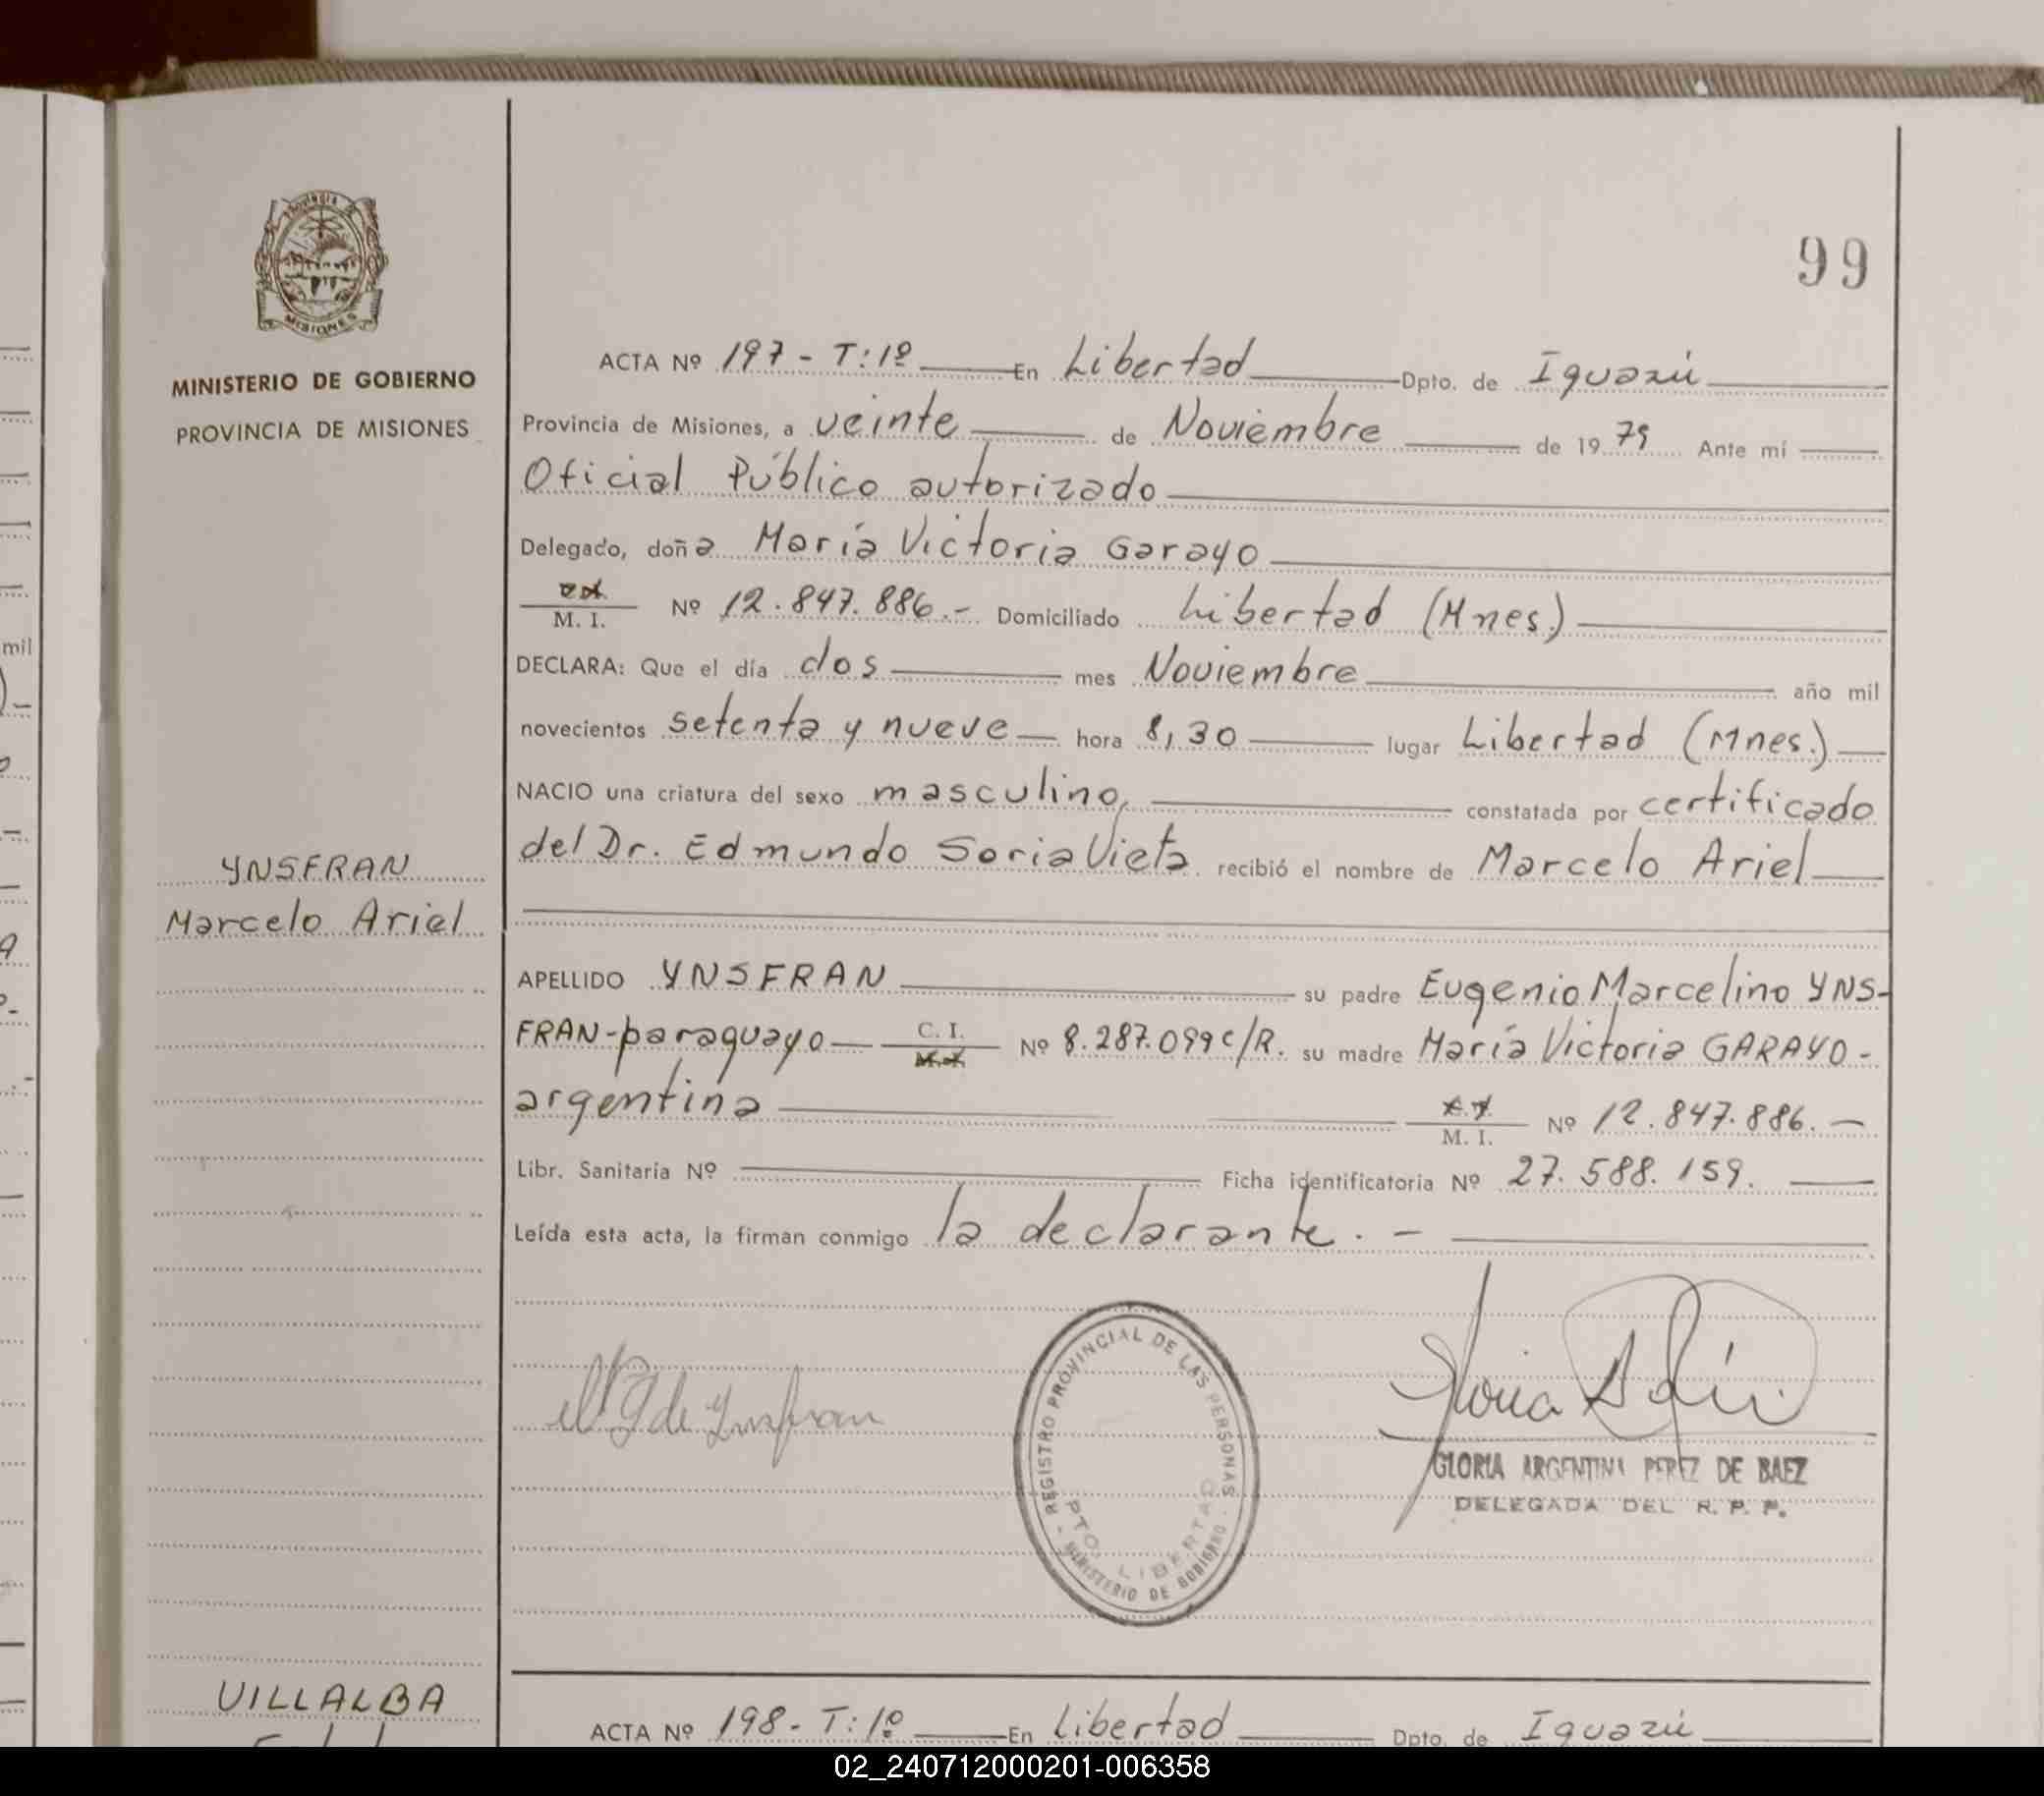 99
MISIONES
MINISTERIO DE GOBIERNO
PROVINCIA DE MISIONES
ACTA Nº 197 - T: 1º En Libertad Dpto. de Iguazú
Provincia de Misiones, a veinte de Noviembre de 19 79 Ante mí
Oficial Público autorizado
Delegado, doña María Victoria Garayo
M. I. Nº 12.847.886.- Domiciliado Libertad (Mnes.)
DECLARA: Que el día dos mes Noviembre año mil
novecientos setenta y nueve hora 8,30 lugar Libertad (Mnes.)
NACIO una criatura del sexo masculino, constatada por certificado
del Dr. Edmundo Soria Vieta recibió el nombre de Marcelo Ariel
YNSFRAN
Marcelo Ariel
APELLIDO YNSFRAN su padre Eugenio Marcelino YNS-
FRAN-paraguayo C. I. Nº 8.287.099 c/R. su madre María Victoria GARAYO-
argentina M. I. Nº 12.847.886.
Libr. Sanitaria Nº Ficha identificatoria Nº 27.588.159.
Leída esta acta, la firman conmigo la declarante. -
de Ynsfran
REGISTRO PROVINCIAL DE LAS PERSONAS - MINISTERIO DE GOBIERNO -
DPTO. LIBERTAD
GLORIA ARGENTINA PEREZ DE BAEZ
DELEGADA DEL R. P. P.
VILLALBA
ACTA Nº 198- T: 1º En Libertad Dpto. de Iguazú
mil
02_240712000201-006358